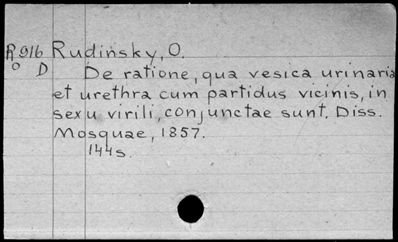 R916 Rudinsky, O.
O D De ratione, qua vesica urinaria
et urethra cum partidus vicinis, in
sexu virili, conjunctae sunt. Diss.
Mosquae, 1857.
144s.